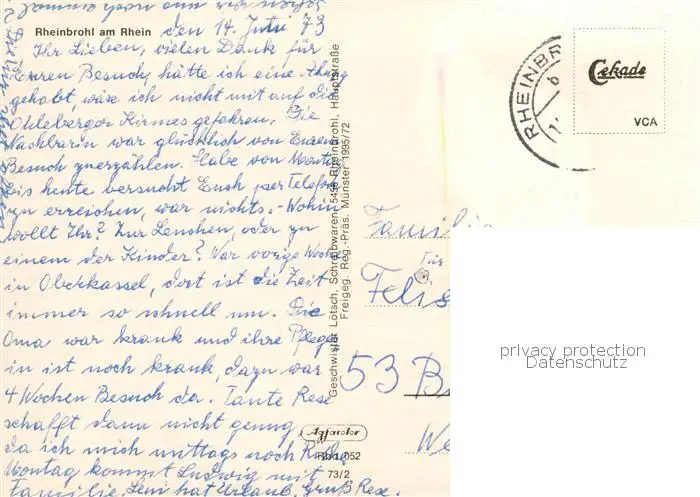 Rheinbrohl am Rhein
den 14. Juli 73
Ihr Lieben, vielen Dank für
Euren Besuch, hätte ich eine Ahnung
gehabt, wäre ich nicht mit auf die
Ohleberger Kirmes gefahren. Die
Nachbarin war glücklich von Eurem
Besuch zu erzählen. Habe von Montag
bis heute versucht Euch per Telefon
zu erreichen, war nichts. - Wohin
wollt Ihr? Zur Lenchen, oder zu
einem der Kinder? War vorige Woche
in Oberkassel, dort ist die Zeit
immer so schnell um. Die
Oma war krank und ihre Pfleger
in ist noch krank, dazu war
4 Wochen Besuch da. Tante Rese
schafft dann nicht genug,
da ich mich mittags noch
Montag kommt Ludwig mit
Familie. Leni hat Urlaub. Gruß Rese.
Geschwister Lötsch, Schreibwaren, 5456 Rheinbrohl, Hauptstraße
Freigeg. Reg.-Präs. Münster 1995/72
Agfacolor
Rbo 052
73/2
RHEINBR
Cekade
VCA
Familie
Für
Felis
53 B
We
privacy protection
Datenschutz